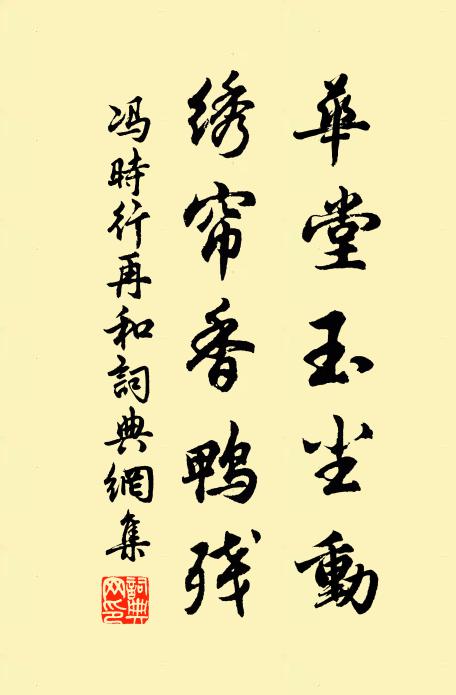 華堂玉尘動
绣帘香鸭残
冯時行再和詞典網集
詞典网印